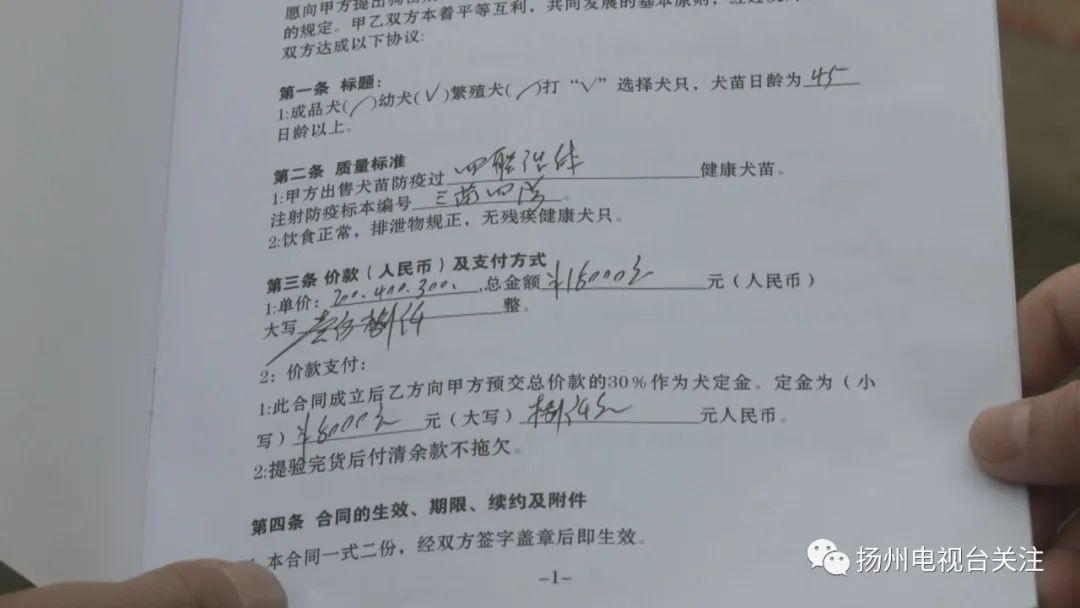 愿向甲方提出
的规定。甲乙双方本着平等互利，共同发展的基本原则，经过
双方达成以下协议:
第一条 标题:
1:成品犬( )幼犬(√)繁殖犬( )打“√”选择犬只，犬苗日龄为 45
日龄以上。
第二条 质量标准
1:甲方出售犬苗防疫过 健康犬苗。
注射防疫标本编号 三苗四 。
2:饮食正常，排泄物规正，无残疾健康犬只。
第三条 价款（人民币）及支付方式
1:单价: 200.400.300. ,总金额 ¥18000元 元（人民币）
大写 壹万捌仟 整。
2; 价款支付:
1:此合同成立后乙方向甲方预交总价款的30%作为犬定金。定金为（小
写）¥8000元 元（大写） 捌仟元 元人民币。
2:提验完货后付清余款不拖欠。
第四条 合同的生效、期限、续约及附件
本合同一式二份，经双方签字盖章后即生效。
-1-
扬州电视台关注